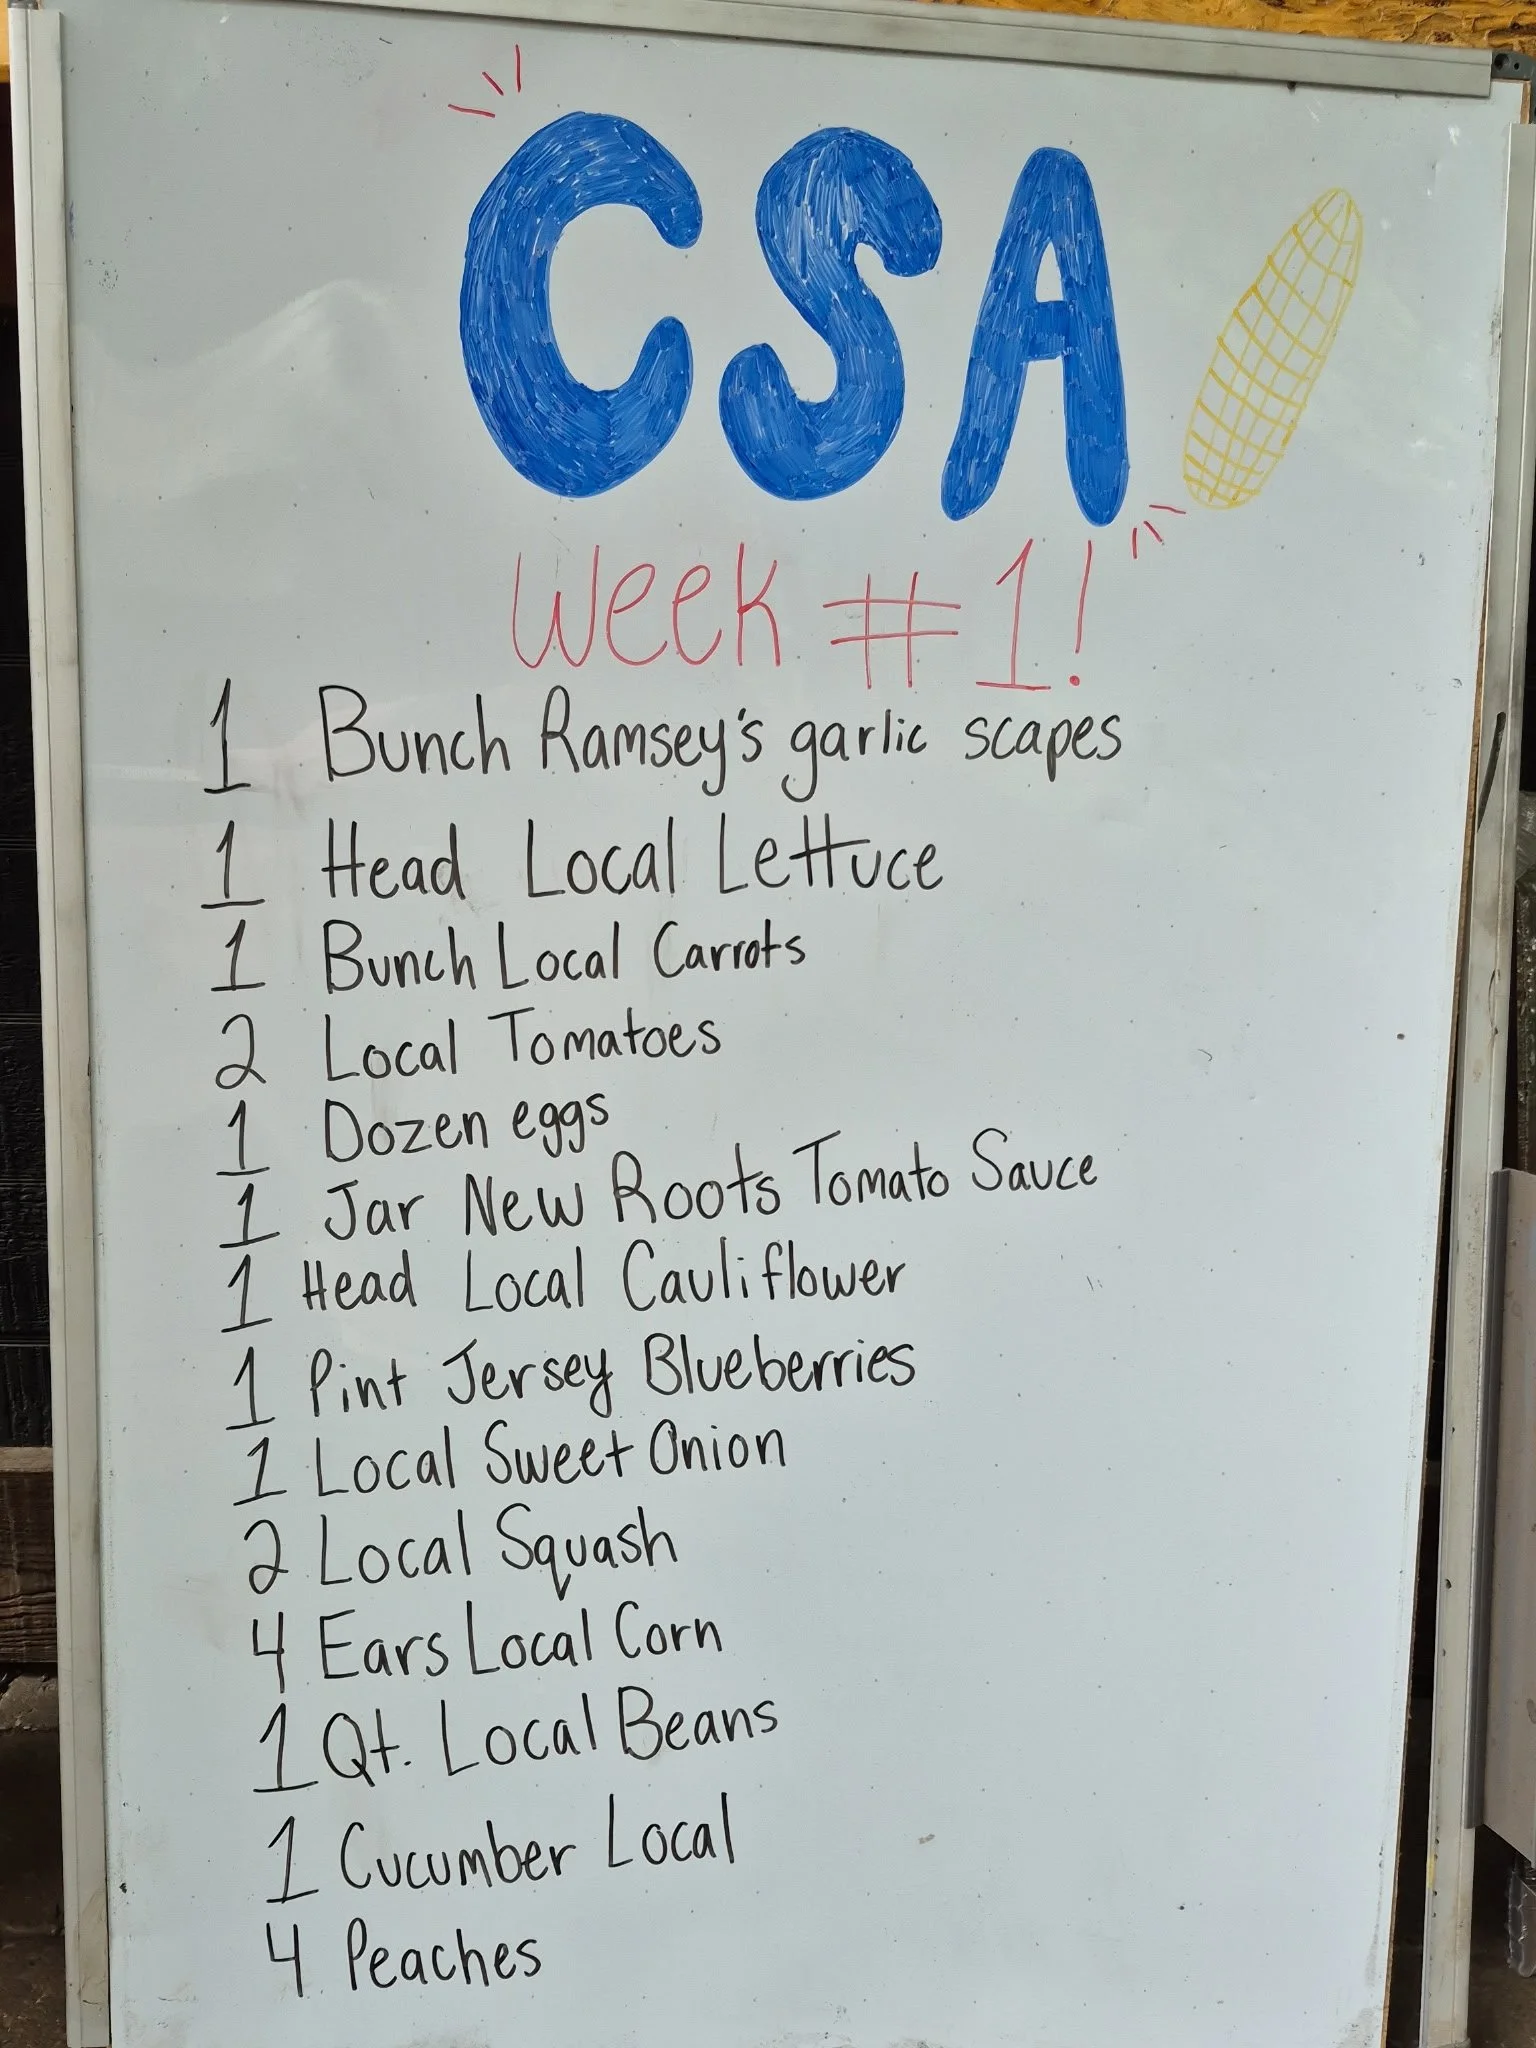 CSA
Week #1!
1 Bunch Ramsey's garlic scapes
1 Head Local Lettuce
1 Bunch Local Carrots
2 Local Tomatoes
1 Dozen eggs
1 Jar New Roots Tomato Sauce
1 Head Local Cauliflower
1 Pint Jersey Blueberries
1 Local Sweet Onion
2 Local Squash
4 Ears Local Corn
1 Qt. Local Beans
1 Cucumber Local
4 Peaches